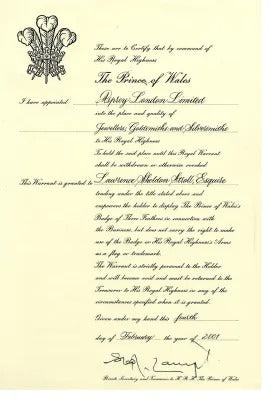 These are to Certify that by command of
His Royal Highness
The Prince of Wales
I have appointed Asprey London Limited
into the place and quality of
Jewellers, Goldsmiths and Silversmiths
to His Royal Highness
To hold the said place until this Royal Warrant
shall be withdrawn or otherwise revoked.
This Warrant is granted to Lawrence Sheldon Stroll, Esquire
trading under the title stated above and
empowers the holder to display The Prince of Wales's
Badge of Three Feathers in connection with
the Business, but does not carry the right to make
use of the Badge or His Royal Highness's Arms
as a flag or trademark.
The Warrant is strictly personal to the Holder
and will become void and must be returned to the
Treasurer to His Royal Highness in any of the
circumstances specified when it is granted.
Given under my hand this fourth
day of February the year of 2001
Private Secretary and Treasurer to H.R.H. The Prince of Wales